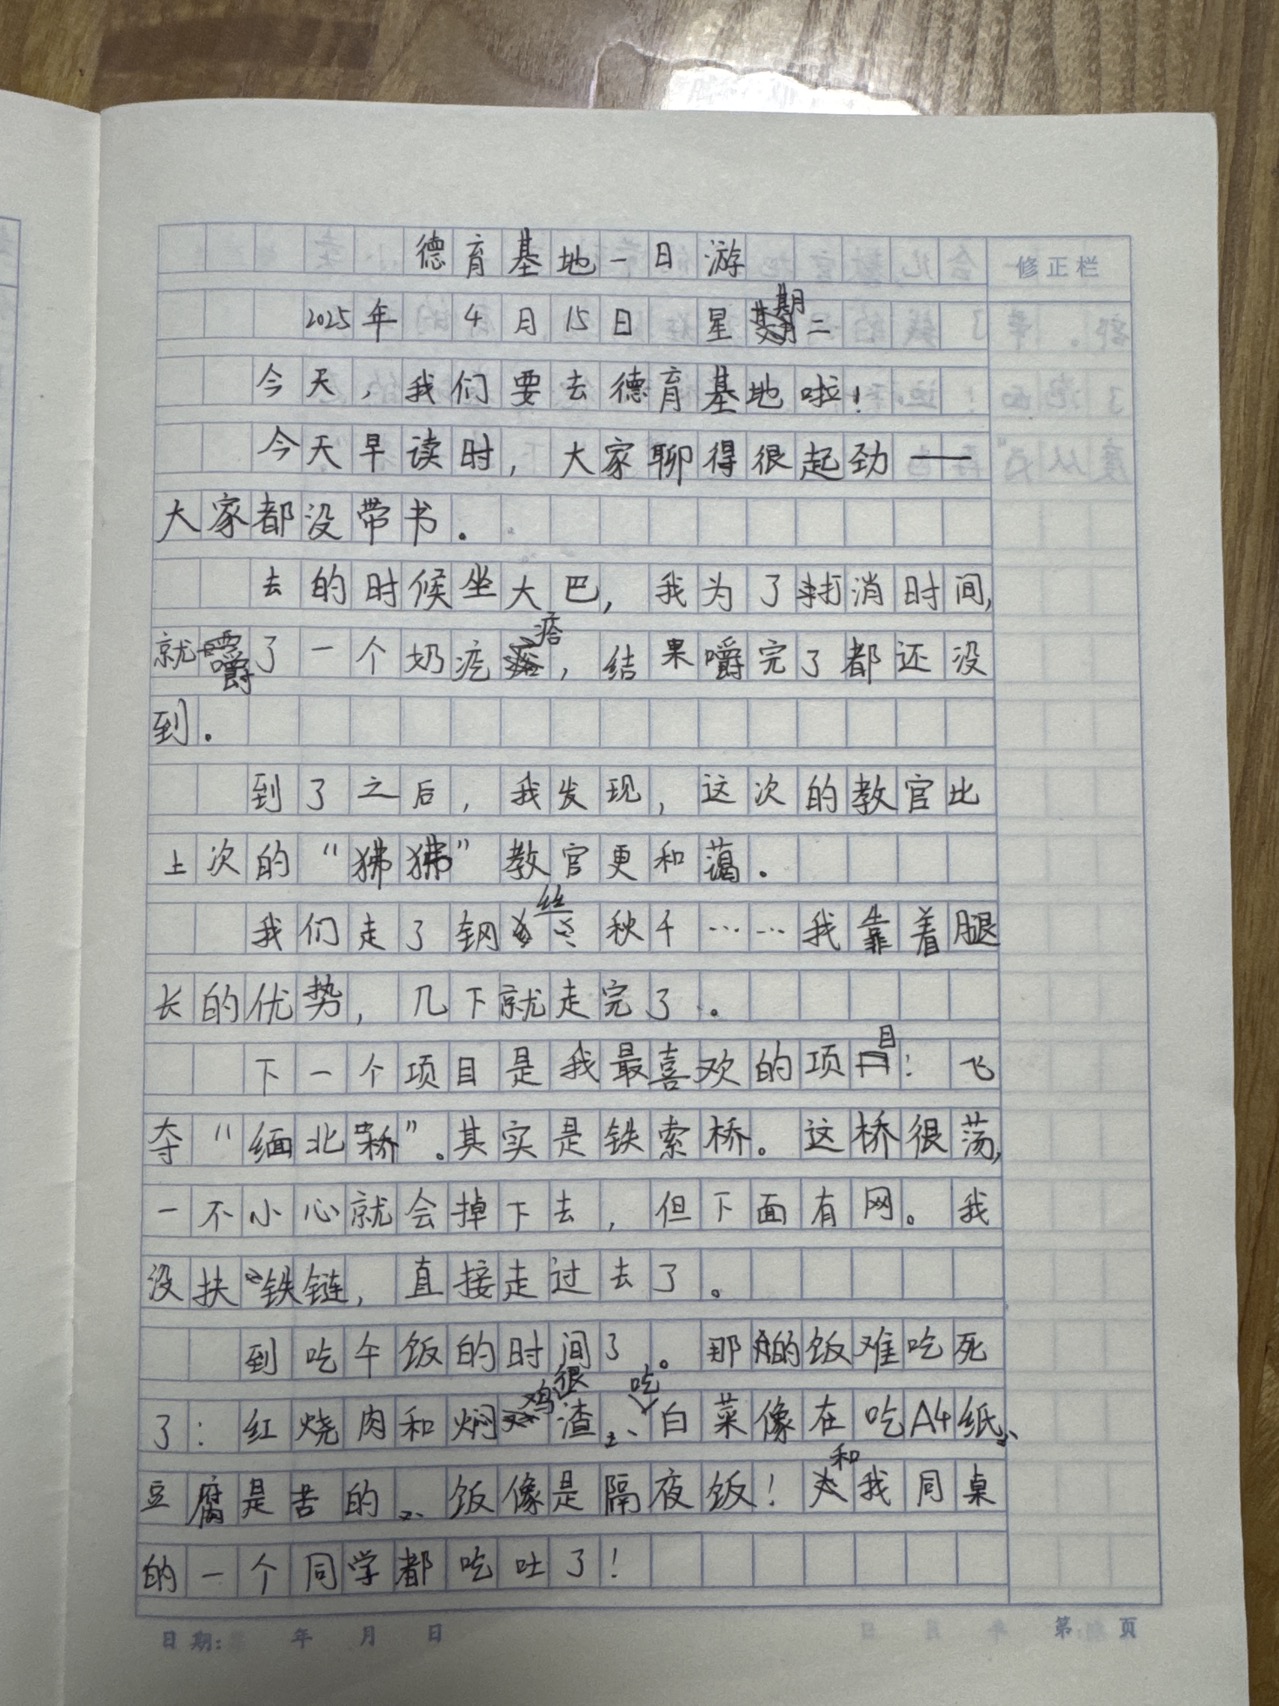 德育基地一日游
修正栏
2025年 4月15日 星期二
今天，我们要去德育基地啦！
今天早读时，大家聊得很起劲——
大家都没带书。
去的时候坐大巴，我为了打消时间，
就嚼了一个奶疙瘩，结果嚼完了都还没
到。
到了之后，我发现，这次的教官比
上次的“狒狒”教官更和蔼。
我们走了钢丝、秋千……我靠着腿
长的优势，几下就走完了。
下一个项目是我最喜欢的项目：飞
夺“缅北桥”。其实是铁索桥。这桥很荡，
一不小心就会掉下去，但下面有网。我
没扶铁链，直接走过去了。
到吃午饭的时间了。那的饭难吃死
了：红烧肉和焖鸡很渣、吃白菜像在吃A4纸、
豆腐是苦的、饭像是隔夜饭！和我同桌
的一个同学都吃吐了！
日期： 年 月 日
第 页